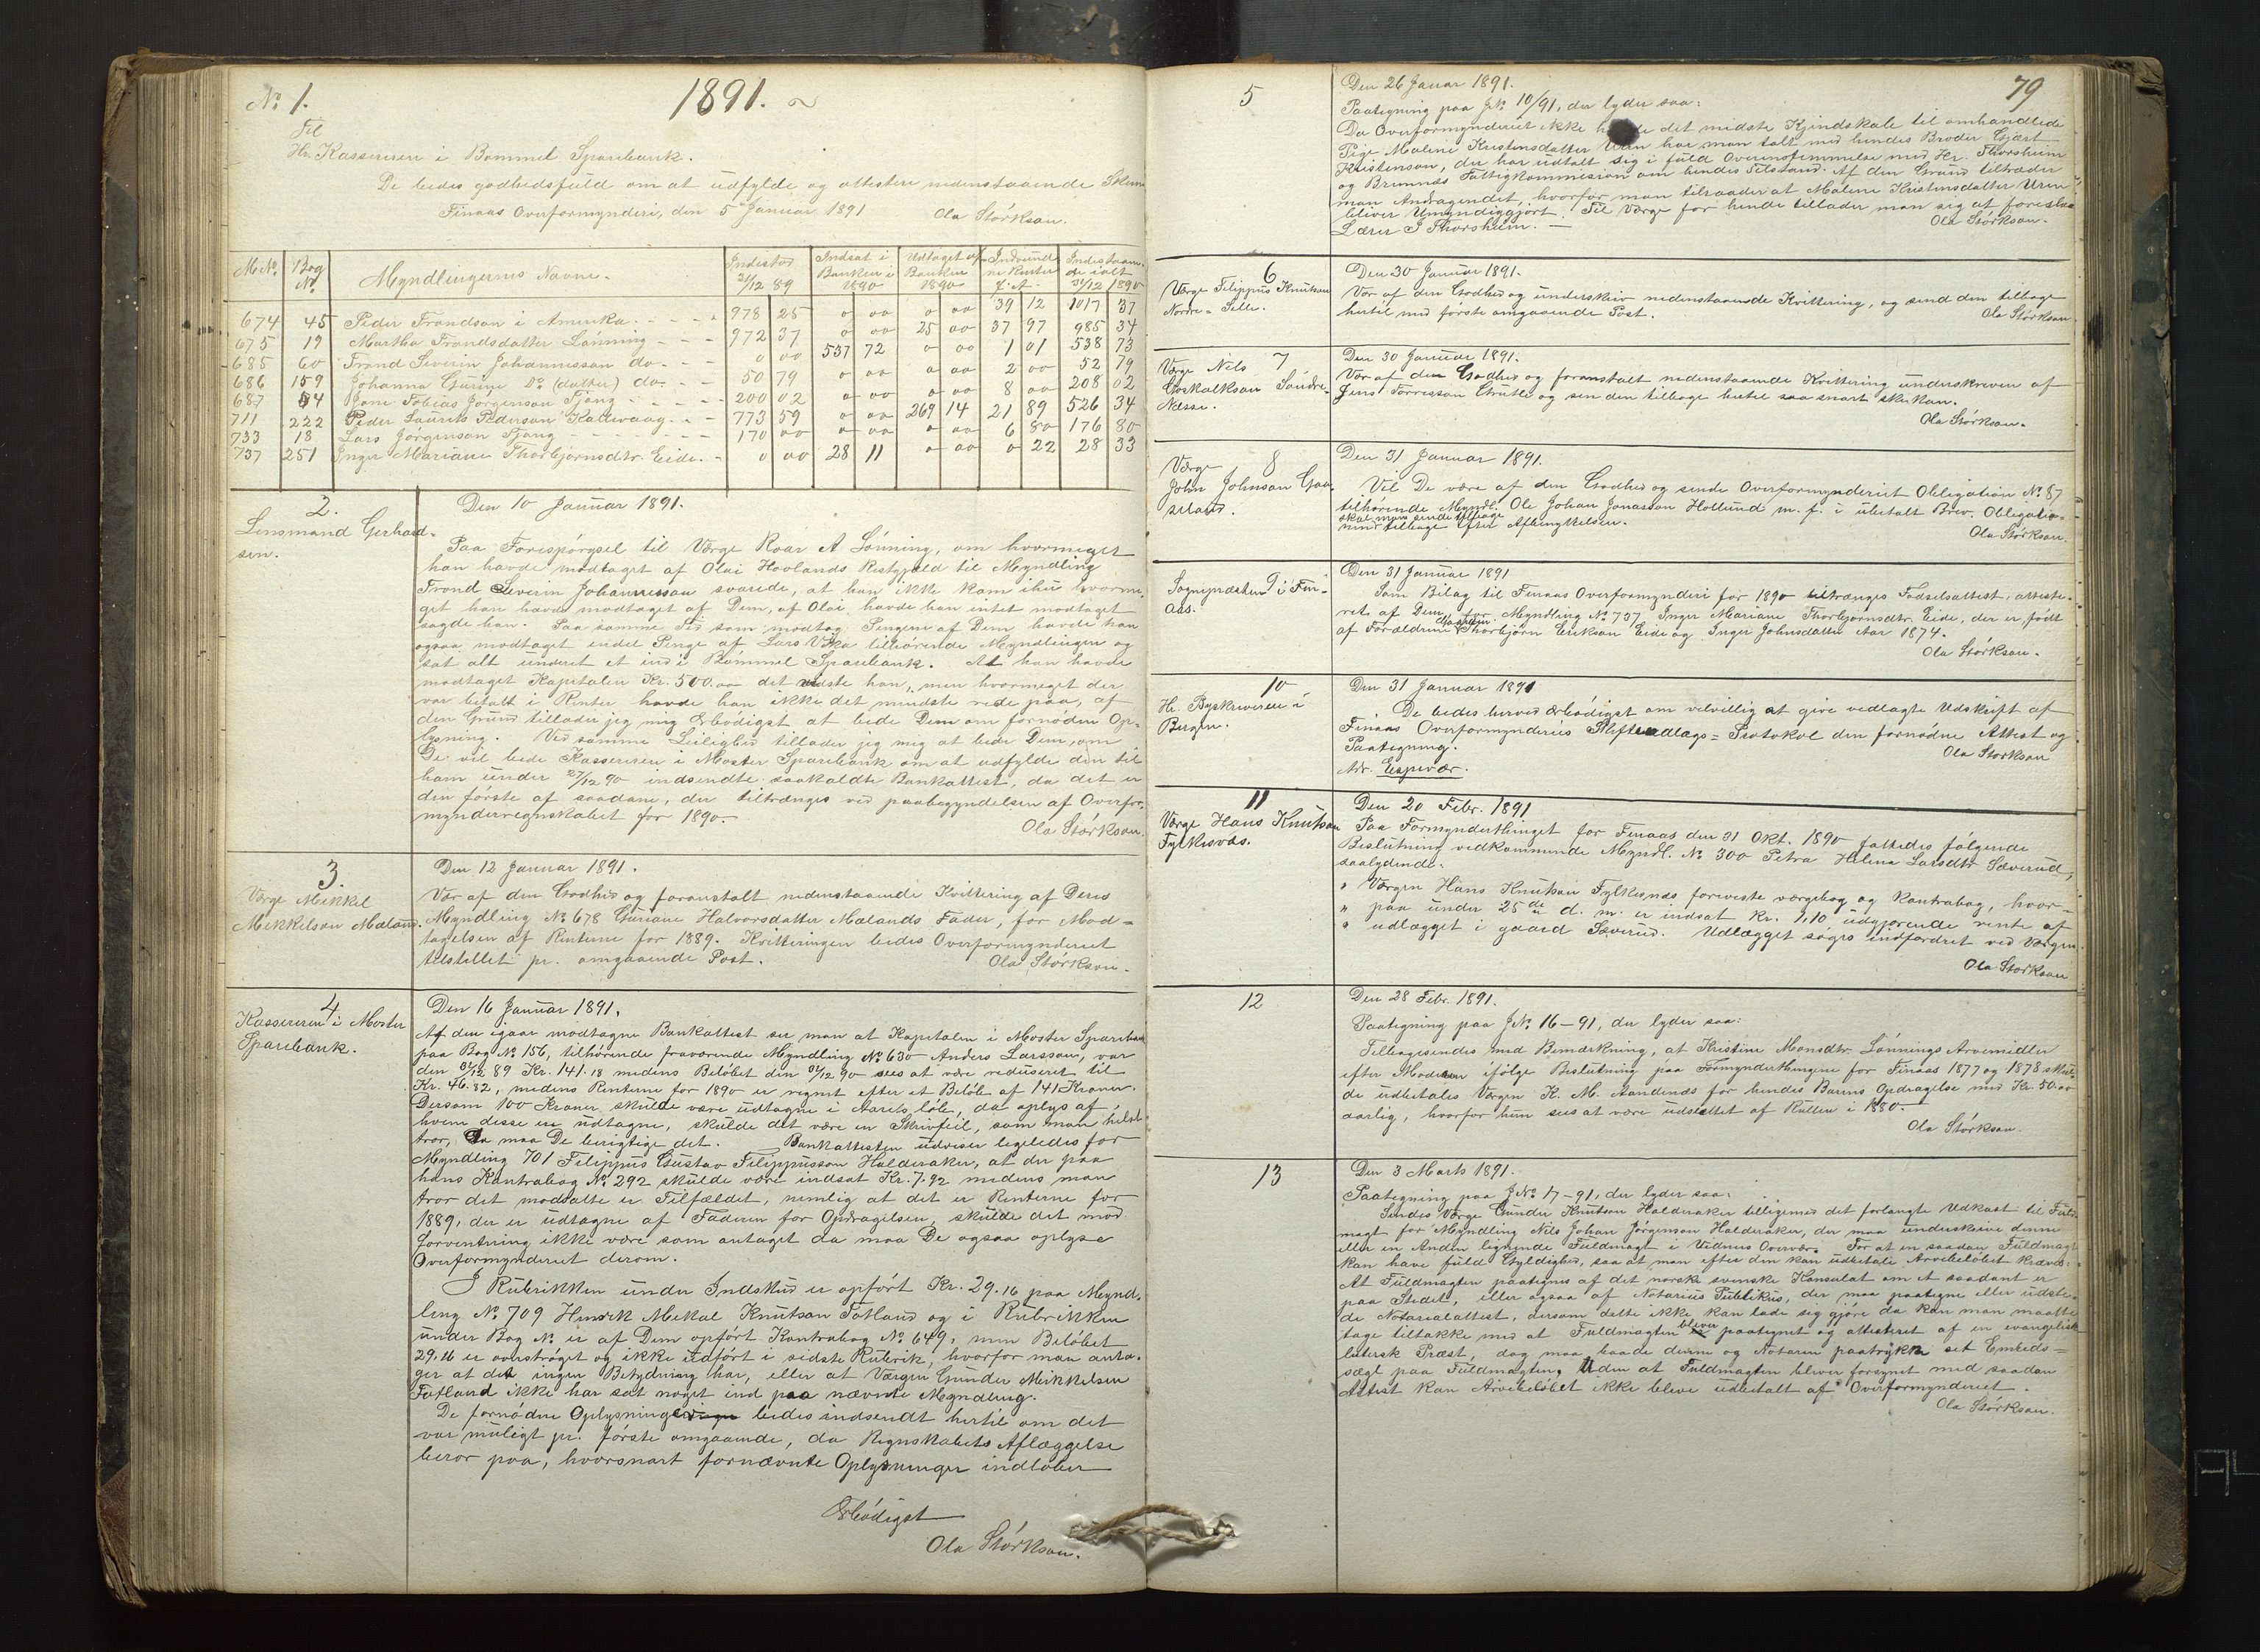 1891.
No 1.
Til
Hr. Kassereren i Bømmel Sparebank.
De bedes godhedsfuld om at udfylde og attestere nedenstaaende Skema
Finaas Overformynderi, den 5 Januar 1891 Ola Størksen.
M No. Bog No. Myndlingernes Navne. Indestod 31/12 89 Indsat i Banken i 1890 Udtaget af Banken 1890 Indvundne Renter Indestaaende ialt 31/12 1890
674 45 Peder Trondsen i Amerika 978 25 0 00 0 00 39 12 1017 37
675 19 Martha Trondsdatter Lønning 972 37 0 00 25 00 37 97 985 34
685 60 Trond Severin Johannessen do. 0 00 537 72 0 00 1 01 538 73
686 159 Johanna Gurine Do (datter) do. 50 79 0 00 0 00 2 00 52 79
687 54 Jens Tobias Jørgensen Fjøng 200 02 0 00 0 00 8 00 208 02
711 222 Peder Laurits Pedersen Kallevaag 773 59 0 00 269 14 21 89 526 34
733 18 Lars Jørgensen Fjøng 170 00 0 00 0 00 6 80 176 80
737 251 Inger Mariane Thorbjørnsdtr. Eide. 0 00 28 11 0 00 0 22 28 33
2.
Lensmand Gerhard-
sen.
Den 10 Januar 1891.
Paa Forespørgsel til Værge Roar A Lønning, om hvormeget
han havde modtaget af Olai Hovlands Restgjæld til Myndling
Trond Severin Johannessen svarede, at han ikke kom ihu hvorme-
get han havde modtaget af Dem, af Olai havde han intet modtaget
sagde han. Paa samme Tid som modtog Pengene af Dem havde han
ogsaa modtaget endel Penge af Lars Vika tilhørende Myndlingen og
sat alt under et ind i Bømmel Sparebank. At han havde
modtaget Kapitalen Kr. 500.00 det vidste han, men hvormeget der
var betalt i Renter havde han ikke det mindste rede paa, af
den Grund tillader jeg mig ærbødigst at bede Dem om fornøden Op-
lysning. Ved samme Leilighed tillader jeg mig at bede Dem, om
De vil bede Kassereren i Moster Sparebank om at udfylde den til
ham under 27/12 90 indsendte saakaldte Bankattest, da det er
den første af saadane, der tiltrænges ved paabegyndelsen af Overfor-
mynderregnskabet for 1890.
Ola Størksen
3.
Værge Mikkel
Mikkelsen Mæland.
Den 12 Januar 1891.
Vær af den Godhed og foranstalt nedenstaaende Kvittering af Deres
Myndling No 678 Guriane Halvorsdatter Mælands Fader, for Mod-
tagelsen af Renterne for 1889. Kvitteringen bedes Overformynderiet
tilstillet pr. omgaaende Post.
Ola Størksen.
4
Kassereren i Moster
Sparebank.
Den 16 Januar 1891.
Af den igaar modtagne Bankattest ser man at Kapitalen i Moster Sparebank
paa Bog No 156, tilhørende fraværende Myndling No 630 Anders Larsson, var
den 31/12 89 Kr. 141.18 medens Beløbet den 31/12 90 sees at være reduseret til
Kr. 46.82, medens Renterne for 1890 er regnet efter et Beløb af 141 Kroner.
Dersom 100 Kroner skulde være udtagne i Aarets løb, da oplys af
hvem disse er udtagne, skulde det være en Skrivfeil, som man helst
tror, Da maa De berigtige det. Bankattesten udviser ligeledes for
Myndling 701 Filippus Gustav Filippusson Halderaker, at der paa
hans Kontrabog No 292 skulde være indsat Kr. 7.92 medens man
tror det modsatte er Tilfældet, nemlig at det er Renterne for
1889, der er udtagne af Faderen for Opdragelsen, skulde det mod
forventning ikke være som antaget da maa De ogsaa oplyse
Overformynderiet derom.
I Rubrikken under Indskud er opført Kr. 29.16 paa Mynd-
ling No 709 Henrik Mekal Knutsen Totland og i Rubrikken
under Bog No er af Dem opført Kontrabog No 649, men Beløbet
29.16 er overstrøget og ikke udført i sidste Rubrik, hvorfor man anta-
ger at det ingen Betydning har, eller at Værgen Gunder Mikkelsen
Totland ikke har sat noget ind paa nævnte Myndling.
De fornødne Oplysninger bedes indsendt hertil om det
var muligt pr. første omgaaende, da Regnskabets Aflæggelse
beror paa, hvorsnart fornævnte Oplysninger indløber
Ærbødigst
Ola Størksen.
79
5
Den 26 Januar 1891.
Paategning paa J.No 10/91, der lyder saa:
Da Overformynderiet ikke det mindste Kjendskab til omhandlede
Pige Malene Kristensdatter Uren har man talt med hendes Broder Gjert
Kristenson, der har udtalt sig i fuld Overensstemmelse med Hr. Thorsheim
og Bremnes Fattigkommission om hendes Tilstand. Af den Grund tiltræder
man Andragendet, hvorfor man tilraader at Malene Kristensdatter Uren
bliver Umyndiggjort. Til Værge for hende tillader man sig at foreslaa
Lærer J Thorsheim.
Ola Størksen.
6
Værge Filippus Knutson
Nordre-Selle.
Den 30 Januar 1891.
Vær af den Godhed og underskriv nedenstaaende Kvittering, og send den tilbage
hertil med første omgaaende Post.
Ola Størksen
7
Værge Nils
Goskalkson Søndre-
Nesse.
Den 30 Januar 1891.
Vær af den Godhed og foranstalt nedenstaaende Kvittering underskreven af
Jens Torresson Grutle og sen den tilbage hertil saa snart ske kan.
Ola Størksen.
8
Værge
John Johnson Gaa-
seland.
Den 31 Januar 1891.
Vil De være af den Godhed og sende Overformynderiet Obligation No 87
tilhørende Myndl. Ole Johan Jonassen Hollund m. f. i ubetalt Brev. Obligatio-
skal man sende tilbage
nen tilbage efter Afbenyttelsen.
Ola Størksen.
9
Sognepræsten i Fin-
aas.
Den 31 Januar 1891
Som Bilag til Finaas Overformynderi for 1890 tiltrænges Fødselsattest, atteste-
ret af Dem, for Myndling No 737 Inger Mariane Thorbjørnsdtr. Eide, der er født
af Forældrene Thorbjørn Erikson Eide og Inger Johnsdatter Aar 1874.
Ola Størksen.
10
Hr. Byskriveren i
Bergen.
Den 31 Januar 1891
De bedes herved ærbødigst om velvillig at give vedlagte Udskrift af
Finaas Overformynderies Skifteudlægs-Protokol den fornødne Attest og
Paategning.
Adr. Espevær.
Ola Størksen
11
Værge Hans Knutson
Fylkesnæs.
Den 20 Febr. 1891
Paa Formynderthinget for Finaas den 31 Okt. 1890 fattedes følgende
Beslutning vedkommende Myndl. No 300 Petra Helene Larsdtr Sæverud,
saalydende:
" Værgen Hans Knutson Fylkesnæs foreviste værgebog og kontrabog, hvor-
" paa under 25de d. m. er indsat Kr. 1,10 udgjørende rente af
" udlægget i gaard Sæverud. Udlægget søges indfordret ved værgen.
Ola Størksen
12
Den 28 Febr. 1891.
Paategning paa J.No 16-91, der lyder saa:
Tilbagesendes med Bemærkning, at Kristine Monsdtr. Lønnings Arvemidler
efter Moderen ifølge Beslutning paa Formynderthingene for Finaas 1877 og 1878 skul-
de udbetales Værgen K. M. Aandenes for hendes Barns Opdragelse med Kr. 50.00
aarlig, hvorfor hun sees at være udslettet af Rullen i 1880.
Ola Størksen.
13
Den 3 Marts 1891.
Paategning paa J.No 17-91, der lyder saa:
Sendes Værge Gunder Knutson Halderaker tilligemed det forlangte Udkast til Fuld-
magt for Myndling Nils Johan Jørgenson Halderaker, der maa underskrive denne
eller en Anden lignende Fuldmagt i Vidners Overvær. For at en saadan Fuldmagt
kan have fuld Gyldighed, saa at man efter den kan udbetale Arvebeløbet kræves:
At Fuldmagten paategnes af det norske svenske Konsulat om et saadant er
paa Stedet, eller ogsaa af Notarius Publikus, der maa paategne eller udste-
de Notarialattest, dersom dette ikke kan lade sig gjøre da kan man maatte
tage tiltakke med at Fuldmagten bliver paategnet og attesteret af en evangelisk
lutersk Præst, dog maa baade denne og Notaren paatrykke set Embeds-
segl paa Fuldmagten, Uden at Fuldmagten bliver forsynet med saadan
Attest kan Arvebeløbet ikke bleve udbetalt af Overformynderiet.
Ola Størksen.